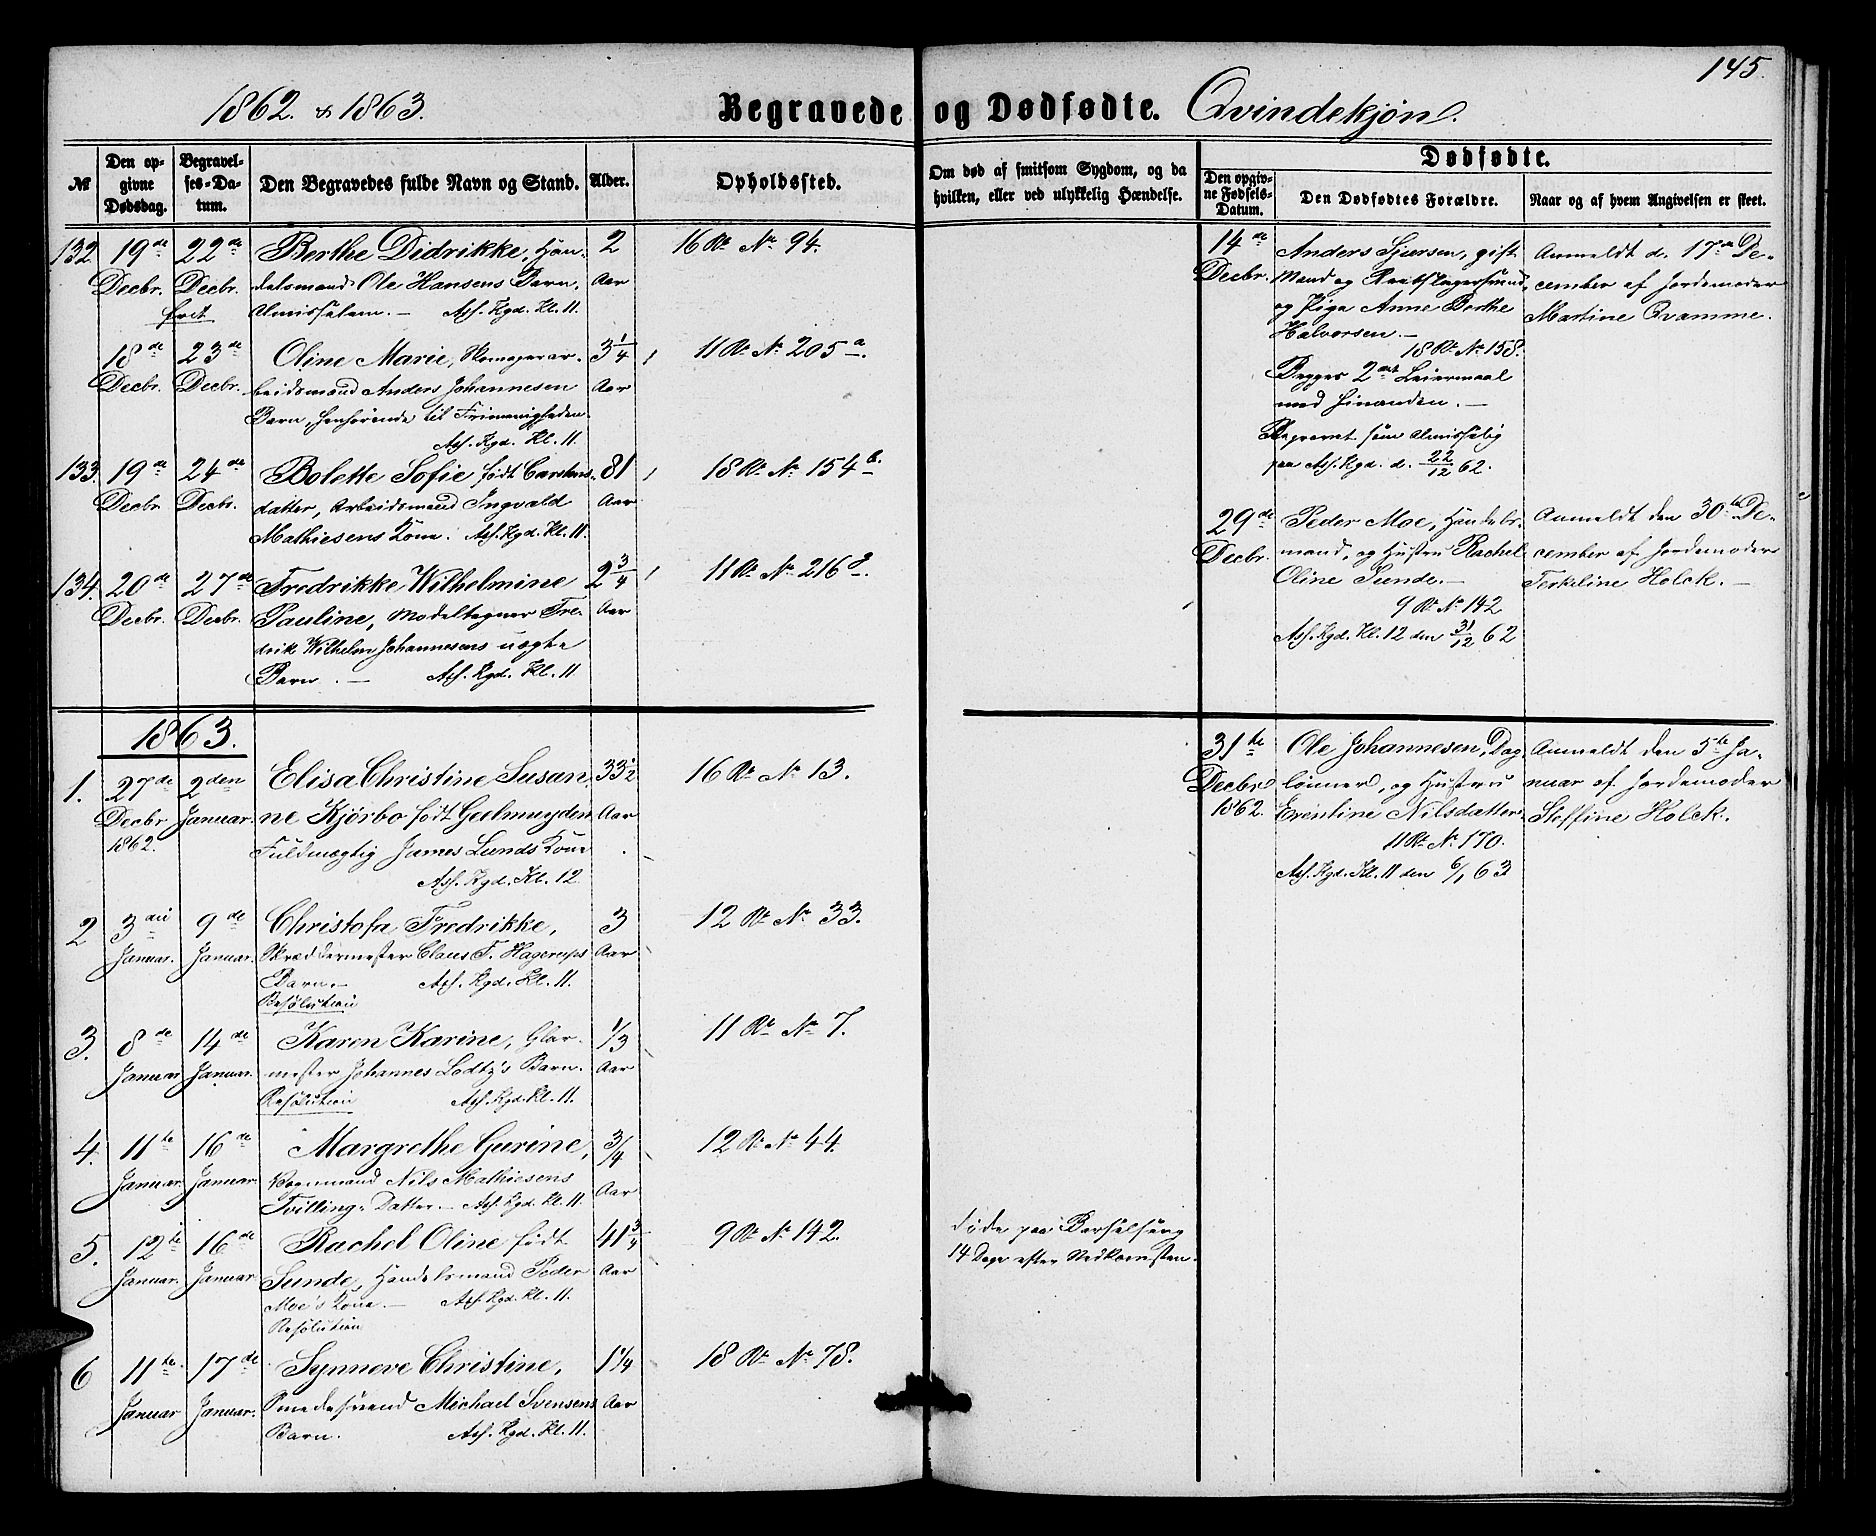 145.
1862. & 1863.
Begravede og Dødfødte. Qvindekjøn.
№
Den opgivne Dødsdag.
Begravelses-Datum.
Den Begravedes fulde Navn og Stand.
Alder.
Opholdssted.
Om død af smitsom Sygdom, og da hvilken, eller ved ulykkelig Hændelse.
Dødfødte.
Den opgivne Fødsels-Datum.
Den Dødfødtes Forældre.
Naar og af hvem Angivelsen er skeet.
132 19de 22de Berthe Didrikke, Han- 2 16 R. No. 94.
Decbr. Decbr. delsmand Ole Hansens Barn. Aar
frit Almissalem. — Ass. Kgd. Kl. 11.
18de 23de Oline Marie, Skomagerar- 3 1/4 11 R. No. 205 a.
Decbr. Decbr. beidsmand Anders Johannesen Aar
Barn, henhørende til Frimenigheden.
Ass. Kgd. Kl. 11.
133. 19de 24de Bolette Sofie født Carstens- 81 18 R. No. 154 b.
Decbr. Decbr. datter, Arbeidsmand Ingvald Aar
Mathiesens Kone. Ass. Kgd. Kl. 11.
134. 20de 27de Fredrikke Wilhelmine 2 3/4 11 R. No. 216
Decbr. Decbr. Pauline, Modeltegner Fre- Aar
drik Wilhelm Johannesens uægte
Barn. — Ass. Kgd. Kl. 11
1863.
1. 27de 2den Elisa Christine Susan- 33 1/2 16 R. No. 13.
Decbr Januar. ne Kjørbo født Geelmuyden Aar
1862. Fuldmægtig James Lunds Kone
Ass. Kgd. Kl. 12.
2 3die 9de Christofa Fredrikke, 3 12 R. No. 33.
Januar. Januar. Skræddermester Claus F. Hagerups Aar
Barn. — Ass. Kgd. Kl. 11.
Resolution
3. 8de 14de Karen Karine, Glar- 1/3 11 R. No. 7.
Januar Januar. mester Johannes Lodtz's Barn. Aar
Resolution Ass. Kgd. Kl. 11.
4. 11te 16de Margrethe Gurine, 3/4 12 R. No. 44.
Januar. Januar. Nils Mathiesens
Tvilling-Datter. — Ass. Kgd. Kl. 11. Aar
5. 12te 16de Rachel Oline født 41 3/4 9 R. No. 142. Døde paa Barselseng
Januar. Januar Sunde, Handelsmand Peder Aar 14 Dage efter Nedkomsten.
Moe's Kone. — Ass. Kgd. Kl. 11.
Resolution
6 11te 17de Synneve Christine, 1 1/4 18 R. No. 78.
Januar Januar. Smedesvend Michael Svensens Aar
Barn. Ass. Kgd. Kl. 11.
14de Anders Sjursen, gift Anmeldt d. 17de De-
Decbr. Mand og Reebslagersvend, cember af Jordemoder
og Pige Anne Berthe Martine Qvamme.
Halvorsen. —
18 R. No. 158.
Begges 2det Leiermaal
med hinanden. —
Begravet som Almissalig
paa Ass. Kgd. d. 22/12 62.
29de Peder Moe, Handels- Anmeldt den 30te De-
Decbr. mand, og Hustru Rachel cember af Jordemoder
Oline Sunde. — Terkeline Holck. —
9 R. No. 142
Ass. Kgd. Kl. 12 den 31/12 62
31te Ole Johannesen, Dag- Anmeldt den 5te Ja-
Decbr lønner, og Hustru nuar af Jordemoder
1862. Erentine Nilsdatter. Steffine Holck.
11 R. No. 170.
Ass. Kgd. Kl. 11 den 6/1 63